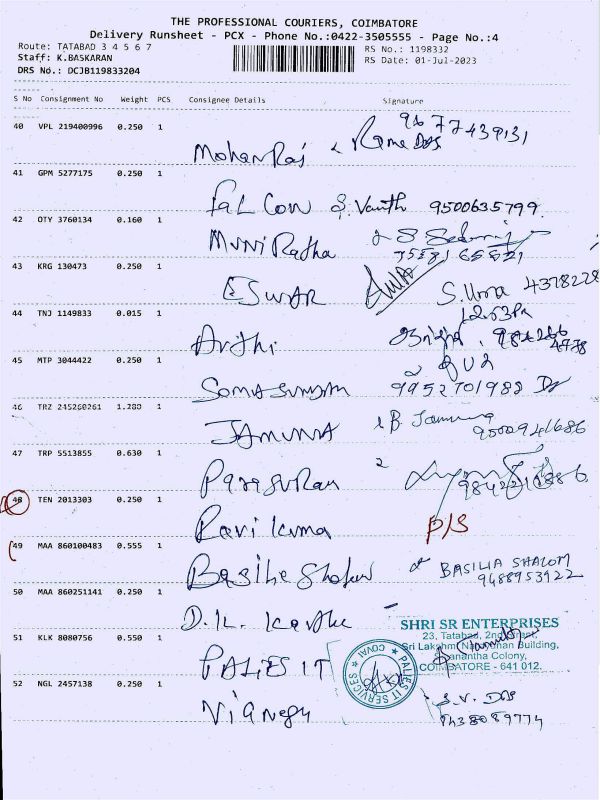 THE PROFESSIONAL COURIERS, COIMBATORE
Delivery Runsheet - PCX - Phone No.:0422-3505555 - Page No.:4
Route: TATABAD 3 4 5 6 7
RS No.: 1198332
Staff: K.BASKARAN
RS Date: 01-Jul-2023
DRS No.: DCJB119833204
S No Consignment No Weight PCS Consignee Details Signature
40 VPL 219400996 0.250 1
9677439131
MohanRaj Rama
41 GPM 5277175 0.250 1
FALCON S. Vanth 9500635799
42 OTY 3760134 0.160 1
MuniRatha
43 KRG 130473 0.250 1
ESWAR S. Uma 4378228
44 TNJ 1149833 0.015 1
Arthi
45 MTP 3044422 0.250 1
Somasundam 9952701988
46 TRZ 245260261 1.280 1
JAMUNA B. Jamuna
9500941686
47 TRP 5513855 0.630 1
ParasuRam
9842210886
48 TEN 2013303 0.250 1
Ravi Kuma P/S
49 MAA 860100483 0.555 1
BASILIA SHALOM
9488953922
50 MAA 860251141 0.250 1
D.K. Karthe
SHRI SR ENTERPRISES
23, Tatabad, 2nd Street,
51 KLK 8080756 0.550 1
Sri Lakshmi Narayanan Building,
Alanantha Colony,
COIMBATORE - 641 012.
PALIES IT
PALIES IT SERVICES
COVAI
52 NGL 2457138 0.250 1
S.V. DAS
9438089774